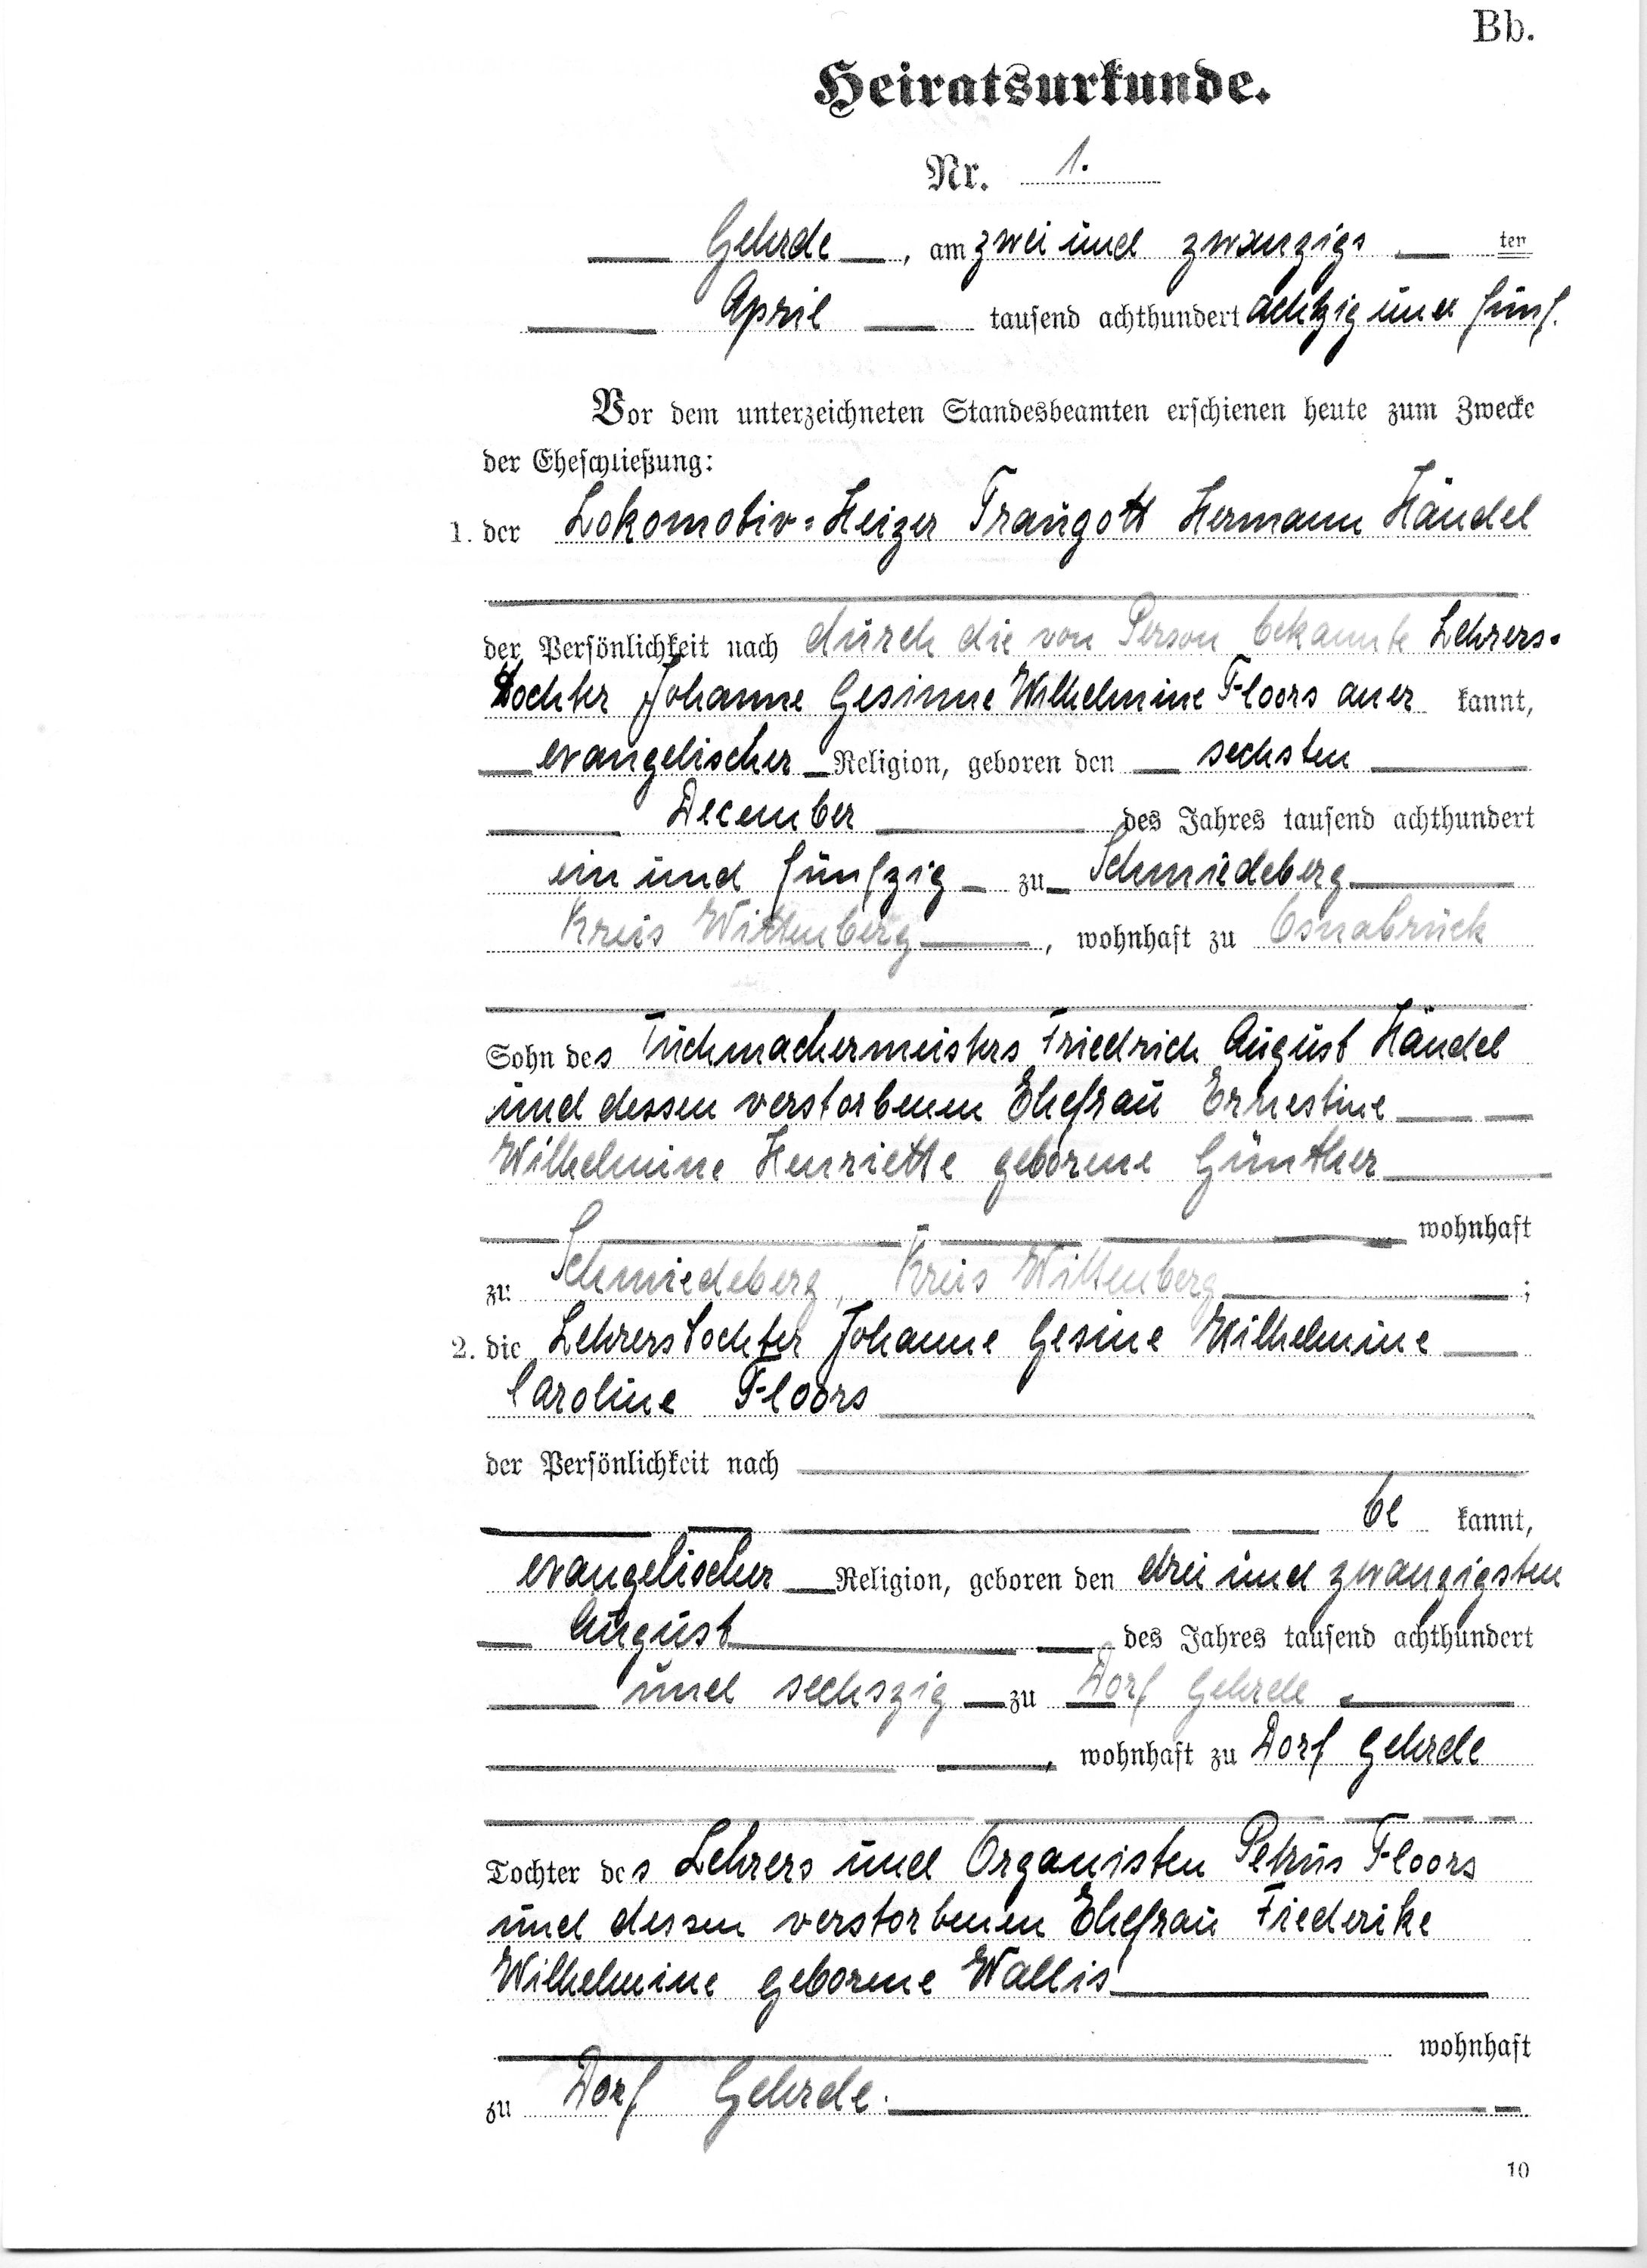 Bb.
Heiratsurkunde.
Nr. 1.
Gehrde, am zwei und zwanzigs ten
April tausend achthundert achtzig und fünf.
Vor dem unterzeichneten Standesbeamten erschienen heute zum Zwecke
der Eheschließung:
1. der Lokomotiv=Heizer Traugott Hermann Händel
der Persönlichkeit nach durch die von Person bekannte Lehrers-
tochter Johanne Gesinne Wilhelmine Floors aner kannt,
evangelischer Religion, geboren den sechsten
December des Jahres tausend achthundert
ein und fünfzig zu Schmiedeberg
Kreis Wittenberg, wohnhaft zu Osnabrück
Sohn des Tuchmachermeisters Friedrich August Händel
und dessen verstorbenen Ehefrau Ernestine
Wilhelmine Henriette geborene Günther
wohnhaft
zu Schmiedeberg, Kreis Wittenberg;
2. die Lehrerstochter Johanne Gesine Wilhelmine
Caroline Floors
der Persönlichkeit nach
be kannt,
evangelischer Religion, geboren den drei und zwanzigsten
August des Jahres tausend achthundert
und sechszig zu Dorf Gehrde
, wohnhaft zu Dorf Gehrde
Tochter des Lehrers und Organisten Petrus Floors
und dessen verstorbenen Ehefrau Friederike
Wilhelmine geborene Wallis
wohnhaft
zu Dorf Gehrde.
10